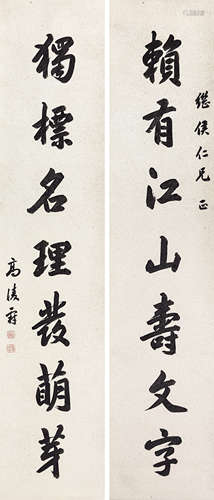 继侯仁兄 正
賴有江山壽文字
獨標名理發萌芽
高凌霨